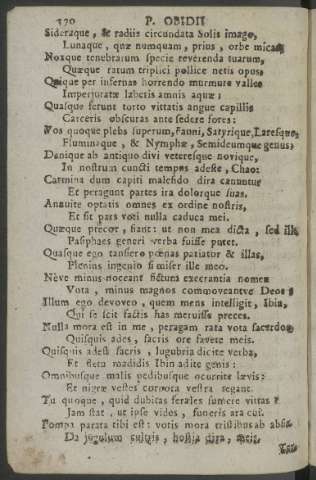 370 P. OBIDII
Sideraque, & radiis circundata Solis imago,
Lunaque, quæ numquam, prius, orbe micas;
Noxque tenebrarum specie reverenda tuarum,
Quæque ratum triplici pollice netis opus,
Quique per infernas horrendo murmure valles
Imperjuratæ laberis amnis aquæ:
Quasque ferunt torto vittatis angue capillis
Carceris obscuras ante sedere fores:
Vos quoque plebs superum, Fauni, Satyrique, Laresque,
Fluminaque, & Nymphæ, Semideumque genus,
Denique ab antiquo divi veteresque novique,
In nostrum cuncti tempus adeste, Chao:
Carmina dum capiti malefido dira canuntur
Et peragunt partes ira dolorque suas.
Annuite optatis omnes ex ordine nostris,
Et sit pars voti nulla caduca mei.
Quæque precor, fiant: ut non mea dicta, sed illa
Pasiphaes generi verba fuisse putet.
Quasque ego tansiero pœnas patiatur & illas,
Plenius ingenio si miser ille meo.
Nève minus noceant fictum execrantia nomen
Vota, minus magnos commoveantve Deos:
Illum ego devoveo, quem mens intelligit, Ibin,
Qui se scit factis has meruisse preces.
Nulla mora est in me, peragam rata vota sacerdos,
Quisquis ades, sacris ore favete meis.
Quisquis adest sacris, lugubria dicite verba,
Et fletu madidis Ibin adite genis:
Ominibusque malis pedibusque ocurrite lævis:
Et nigræ vestes corpora vestra tegant.
Tu quoque, quid dubitas ferales sumere vittas?
Jam stat, ut ipse vides, funeris ara tui.
Pompa parata tibi est: votis mora tristibus absit.
Da jugulum cultris, hostia dira, meis.